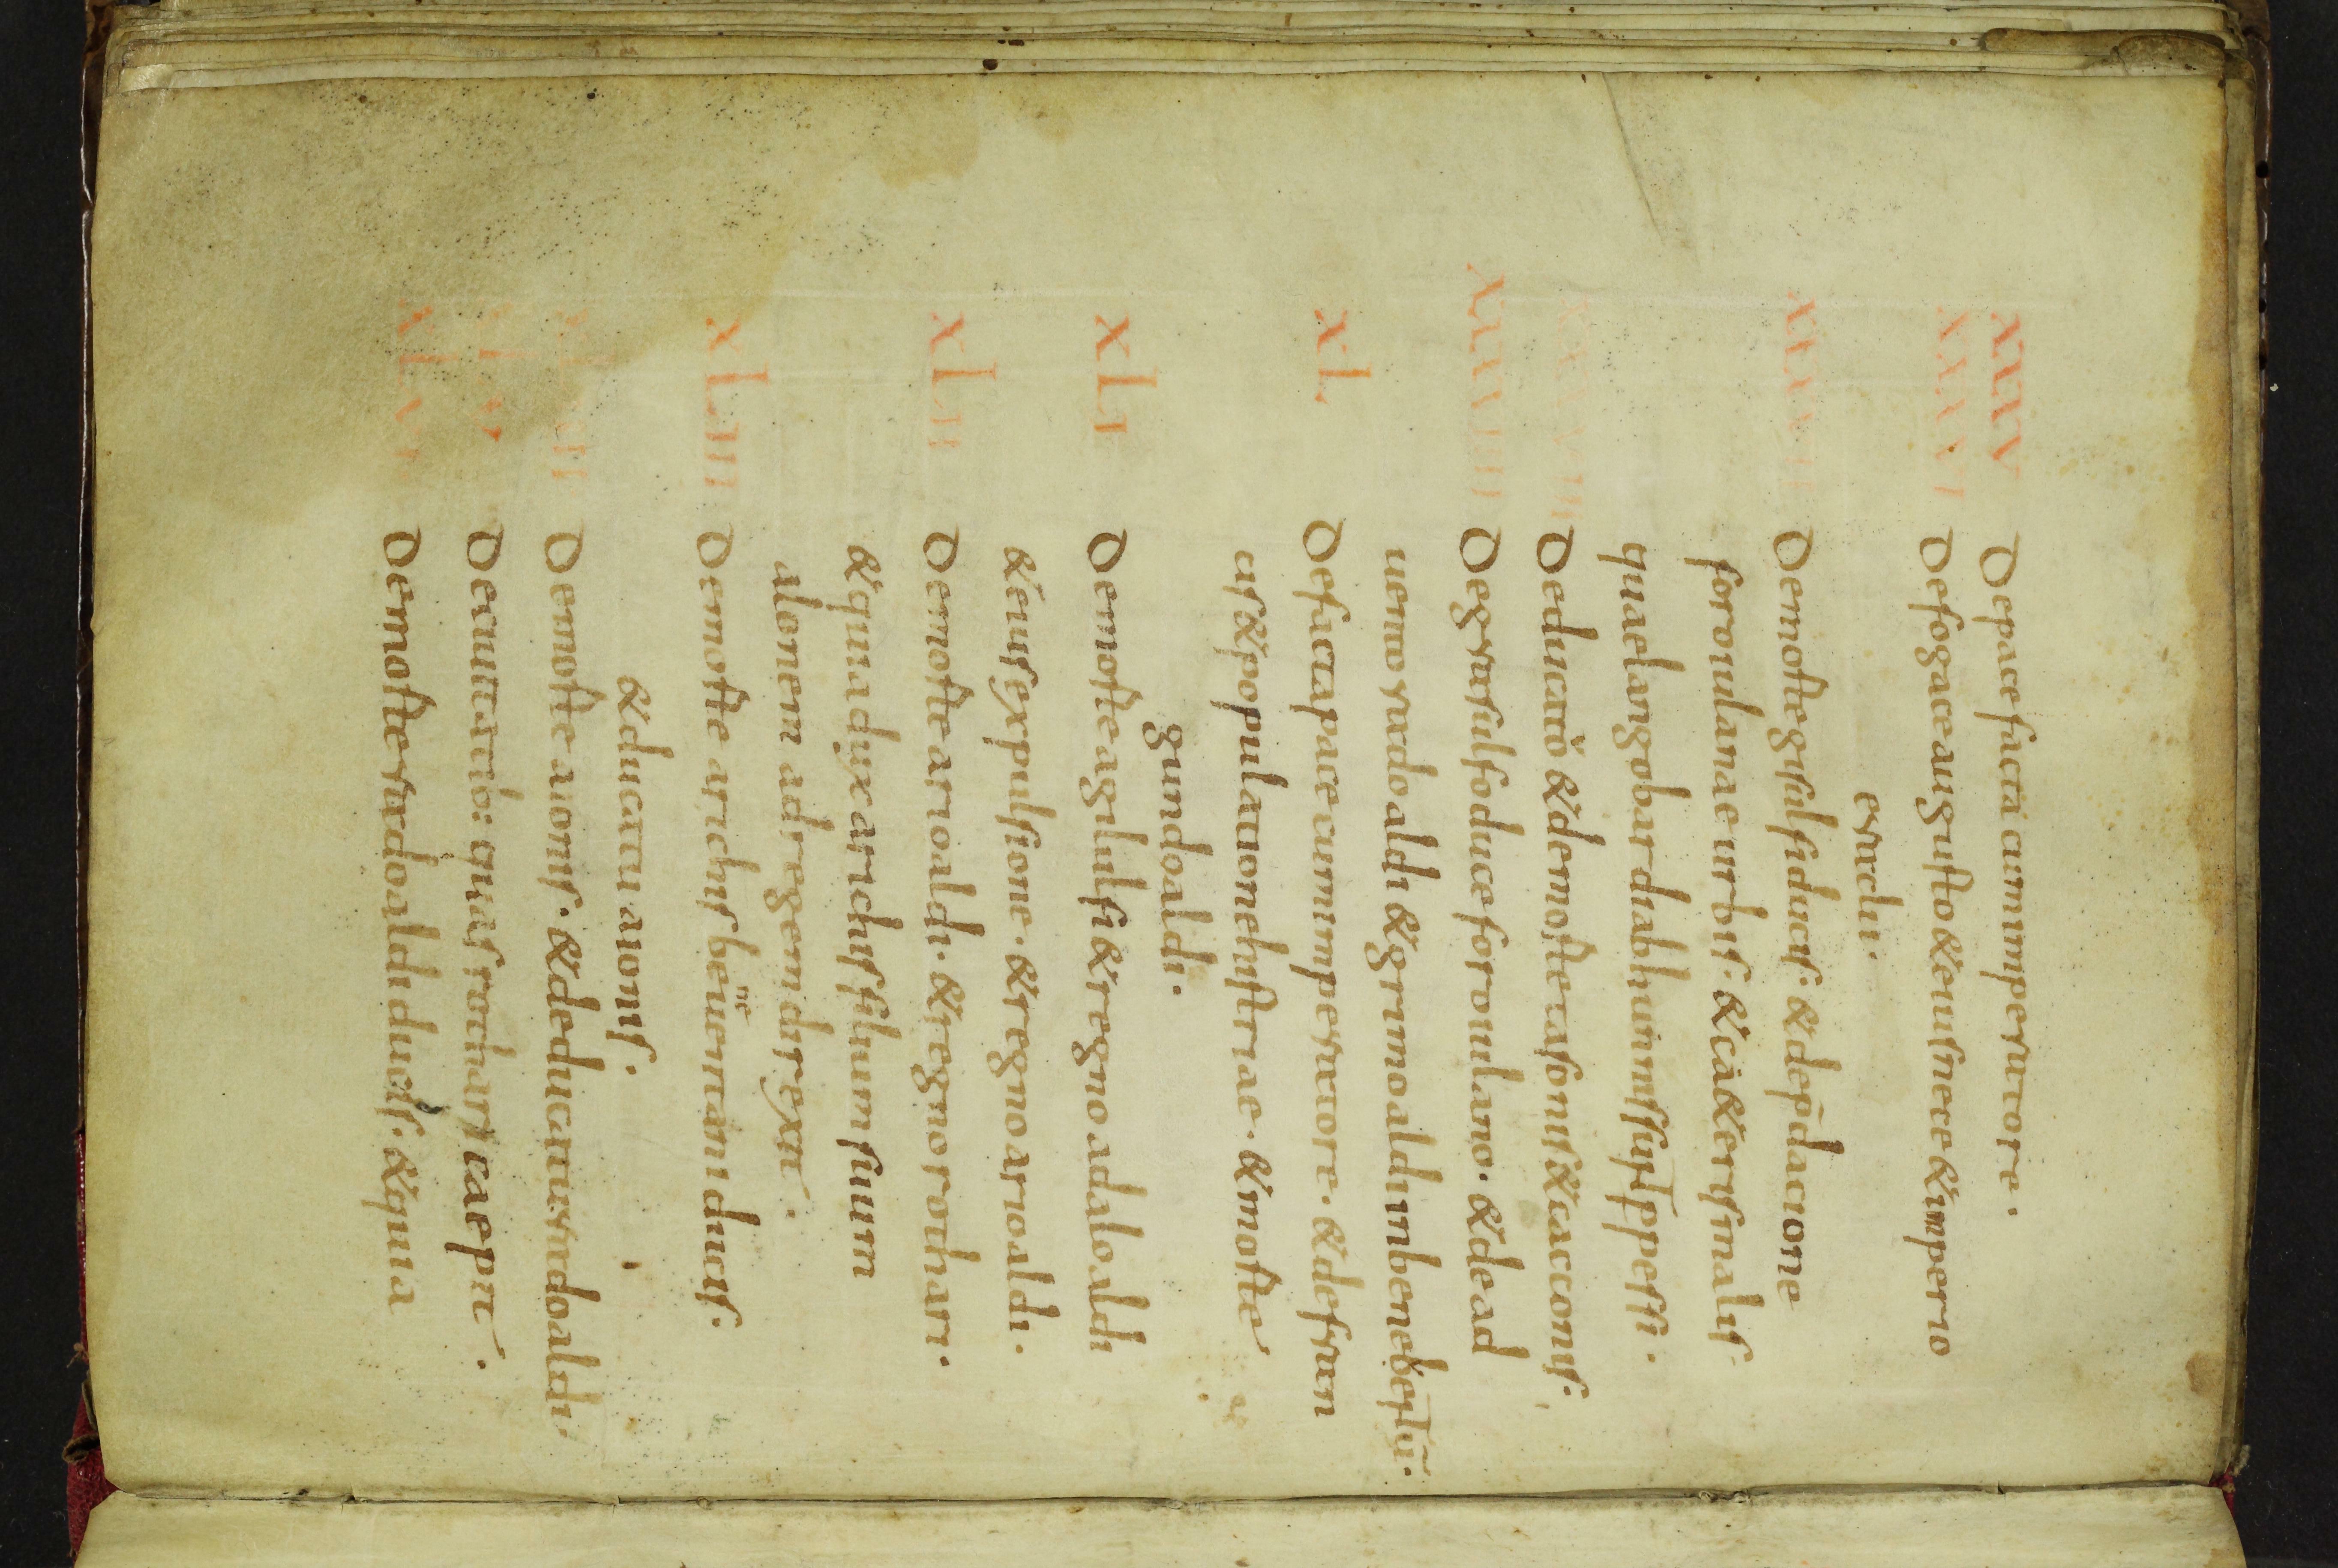 xxxv De pace facta cum imperatore.
xxxvi De fogace augusto & eius nece & imperio
eraclii.
xxxvii De morte gisulfi ducis. & dep̄dacione
foroiulanae urbis. & cȧ&eris malis
quae langobardi ab hunnis sup̄pessi.
xxxviii De ducatȯ & de morte tasonis & cacconis.
xxxviiii De grasulfo duce foroiulano. & de ad
uento radoaldi & grimoaldi in beneb̄tū.
xl De facta pace cum imperatore. & de stran
cis & populatione histriae. & morte
gundoaldi.
xli De morte agilulfi & regno adaloaldi
& eius expulsione. & regno arioaldi.
xlii De morte arioaldi. & regno rothari.
& quia dyxarichis filium suum
aionem ad regem direxit.
xliii De morte arichis beneuentani ducis.
& ducatu aionis.
De morte aionis. & de ducatu radoaldi
De ciuitatib: quas rotharis caepit.
xlvi De morte radoaldi ducis. & quia